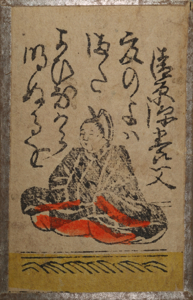 清原深養父
夏のよは
まだ
よひながら
明ぬるを